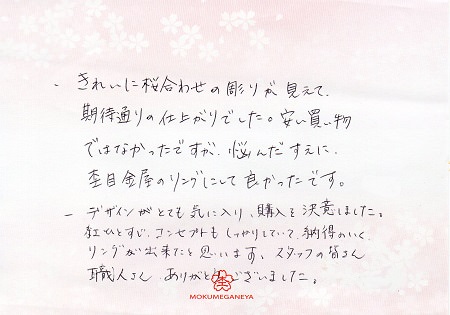 - きれいに桜合わせの彫りが見えて、
期待通りの仕上がりでした。安い買い物
ではなかったですが、悩んだすえに、
杢目金屋のリングにして良かったです。
- デザインがとても気に入り、購入を決意しました。
ひとすじ、コンセプトもしっかりしていて、納得のいく
リングが出来たと思います、スタッフの皆さん
職人さん ありがとうございました。
MOKUMEGANEYA